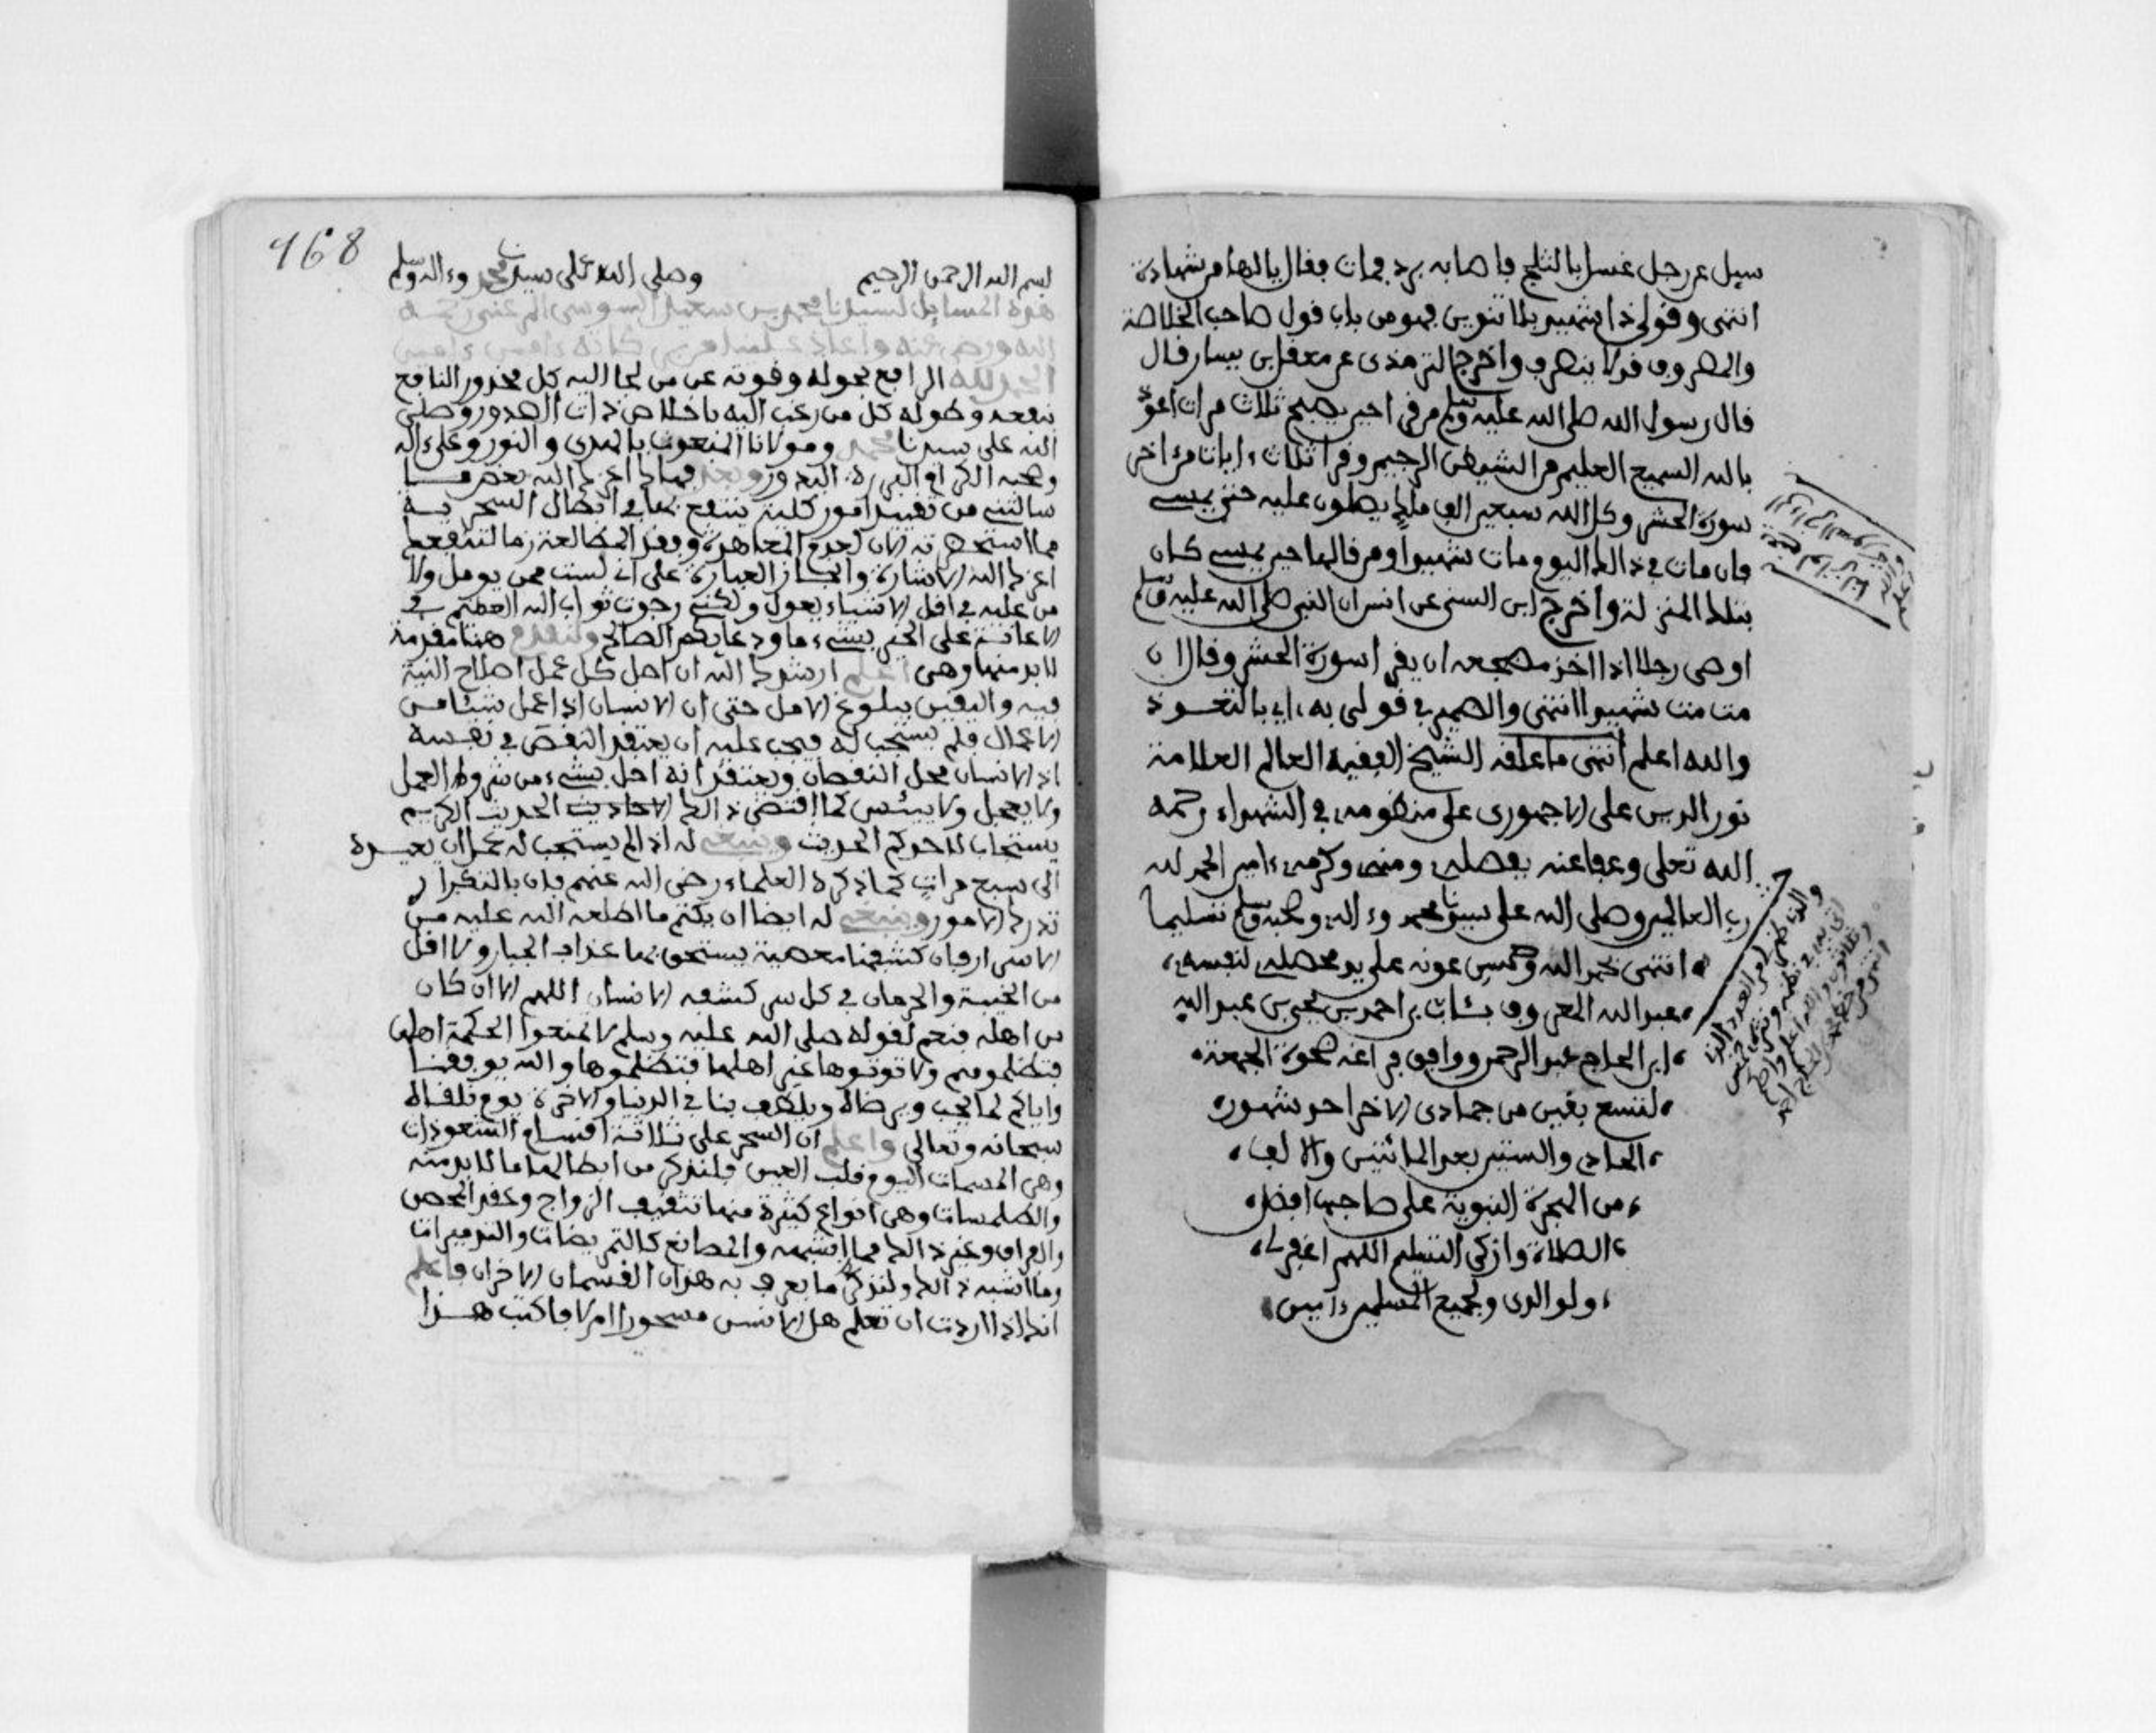 سيل عن رجل غسل بالثلج فاصابه برد فمات فقال يالها من شهادة
انتهى وقولي ذا شهيد بلا تنوين فهو من باب قول صاحب الخلاصة
والمصروف قد لا ينصرف واخرج الترمذي عن معقل بن يسار قال
قال رسول الله صلى الله عليه وسلم من قرا حين يصبح ثلاث مرات اعوذ
بالله السميع العليم من الشيطن الرجيم وقرا ثلاث ءايات من ءاخر
سورة الحشر وكل الله سبعين الف ملك يصلون عليه حتى يمسي
فان مات في ذالك اليوم مات شهيدا ومن قالها حين يمسي كان
بتلك المنزلة واخرج ابن السني عن انس ان النبي صلى الله عليه وسلم
اوصى رجلا اذا اخذ مضجعه ان يقرا سورة الحشر وقال ان
مت مت شهيدا انتهى والضمير في قولي به ، اي بالتعوذ
والله اعلم انتهى ما علقه الشيخ الفقيه العالم العلامة
نور الدين على الاجهوري على منظومه في الشهداء رحمه
الله تعلى وعفا عنه بفضله ومنه وكرمه ءامين الحمد لله
رب العالمين وصلى الله على سيدنا محمد وءاله وصحبه وسلم تسليما
انتهى بحمد الله وحسن عونه على يد محصله لنفسه
عبد الله المعروف بشابب بن احمد بن يحيى بن عبد الله
ابن الحاج عبد الرحمن ووافق فراغه ضحوة الجمعة
لتسع بقين من جمادى الاخر احد شهور
الحادي والستين بعد المائتين والالف
من الهجرة النبوية على صاحبها افضل
الصلاة وازكى التسليم اللهم اغفر له
ولوالدي ولجميع المسلمين ءامين
168
بسم الله الرحمن الرحيم وصلى الله على سيدنا محمد وءاله وسلم
هذه المسايل لسيدنا محمد بن سعيد السوسي المرغتي رحمه
الله ورضي عنه واعاد علينا من بركاته ءامين ءامين
الحمد لله الرافع بحوله وقوته عن من لجا اليه كل محذور النافع
بنفعه وطوله كل من رغب اليه باخلاص ذات الصدور وصلى
الله على سيدنا محمد ومولانا المنعوت بالهدى والنور وعلى ءاله
وصحبه الكرام البررة البدور وبعد فهاك اعزك الله بعض ما
سالتني من تقييد امور كلية ينتفع بها في ابطال السحريه
مما استحضرته الان لعدم المعاصرة وفقد المطالعة زمالتنفعك
اعزك الله الاشارة وايجاز العبارة على اني لست ممن يومل ولا
من عليه في اقل الاشياء يعول ولكني رجوت ثواب الله العظيم في
الاعانة على الخير بشيء ما ودعايكم الصالح ولنقدم هنا مقدمة
لا بد منها وهي اعلم ارشدك الله ان اصل كل عمل اصلاح النية
فيه واليقين ببلوغ الامل حتى ان الانسان اذا عمل شيئا من
الاعمال فلم يستجب له فيجب عليه ان يعتقد النقص في نفسه
اذ الانسان محل النقصان ويعتقد انه اخل بشيء من شروط العمل
ولا يعجل ولا ييئس كما اقتضى ذالك الاحاديث الحديث الكريم
يستجاب لاحدكم الحديث وينبغي له اذا لم يستجب له عمل ان يعيده
الى سبع مرات كما ذكره العلماء رضي الله عنهم فان بالتكرار
تدرك الامور وينبغي له ايضا ان يكتم ما اطلعه الله عليه من
الاسرار فان كشفها معصية يستحق بها عذاب الجبار ولا اقل
من الخيبة والحرمان في كل سر كشفه الانسان اللهم الا ان كان
من اهله فنعم لقوله صلى الله عليه وسلم لا تمنعوا الحكمة اهلها
فتظلموهم ولا توتوها غير اهلها فتظلموها والله يوفقنا
واياكم لما يحب ويرضاه ويلطف بنا في الدنيا والاخرة يوم نلقاه
سبحانه وتعالى واعلم ان السحر على ثلاثة اقسام الشعوذات
وهي المسمات اليوم قلب العين فلنذكر من ابطالها ما لا بد منه
والطلمسات وهي انواع كثيرة منها تثقيف الزواج وعقد الخص
والفراق وغير ذالك مما اشبهه والصانع كالتمريضات والتدميرات
وما اشبه ذالك ولنذكر ما يعرف به هذان القسمان الاخران فاعلم
انك اذا اردت ان تعلم هل الانس مسحورا ام لا فاكتب هذا